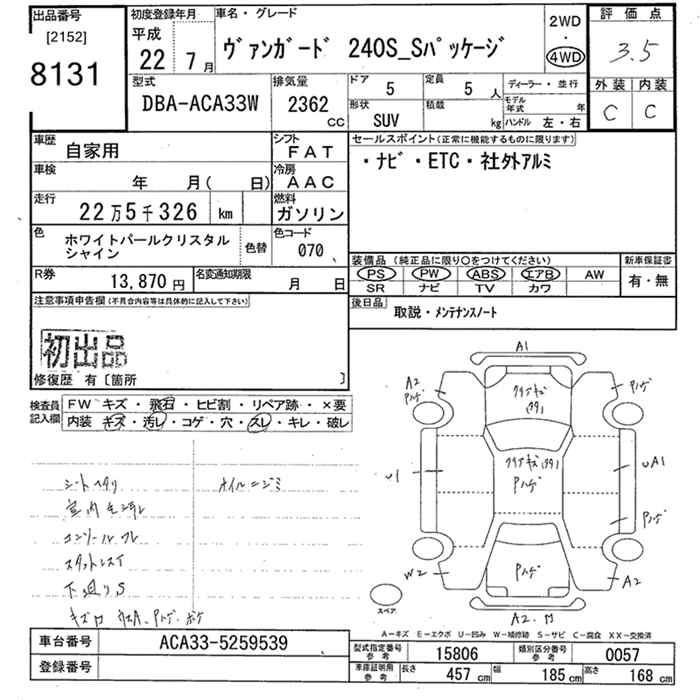 出品番号
[2152]
8131
初度登録年月
平成
22年 7月
車名・グレード
ヴァンガード 240S_Sパッケージ
2WD
・
4WD
評価点
3.5
外装 内装
C C
型式
DBA-ACA33W
排気量
2362 cc
ドア 5
定員 5 人
形状 SUV
積載 kg
ディーラー・並行
モデル年式 年
ハンドル 左・右
車歴 自家用
シフト FAT
車検 年 月( 日)
冷房 AAC
走行 22万5千326 km
燃料 ガソリン
色 ホワイトパールクリスタル
シャイン
色替
色コード 070
R券 13,870円
名変通知期限 月 日
セールスポイント(正常に機能するものに限ります)
・ナビ・ETC・社外アルミ
装備品 (純正品に限り○をつけてください)
PS PW ABS エアB AW
SR ナビ TV カワ
新車保証書
有・無
後日品
取説・メンテナンスノート
注意事項申告欄(不具合内容等は具体的に記入して下さい)
初出品
修復歴 有〔箇所 〕
検査員記入欄
FW キズ・飛石・ヒビ割・リペア跡・×要
内装 キズ・汚レ・コゲ・穴・スレ・キレ・破レ
シートヘタリ
オイルニジミ
コンソールワレ
下廻りS
A1
A2
Pハゲ
Pハゲ
クリアキズ
U1
Pハゲ
UA1
Pハゲ
W2
Pハゲ
A2
スペア
A2.
A-キズ E-エクボ U-凹み W-補修跡 S-サビ C-腐食 XX-交換済
車台番号 ACA33-5259539
登録番号
型式指定番号参考 15806
類別区分番号参考 0057
車庫証明用参考 長さ 457cm 幅 185cm 高さ 168cm